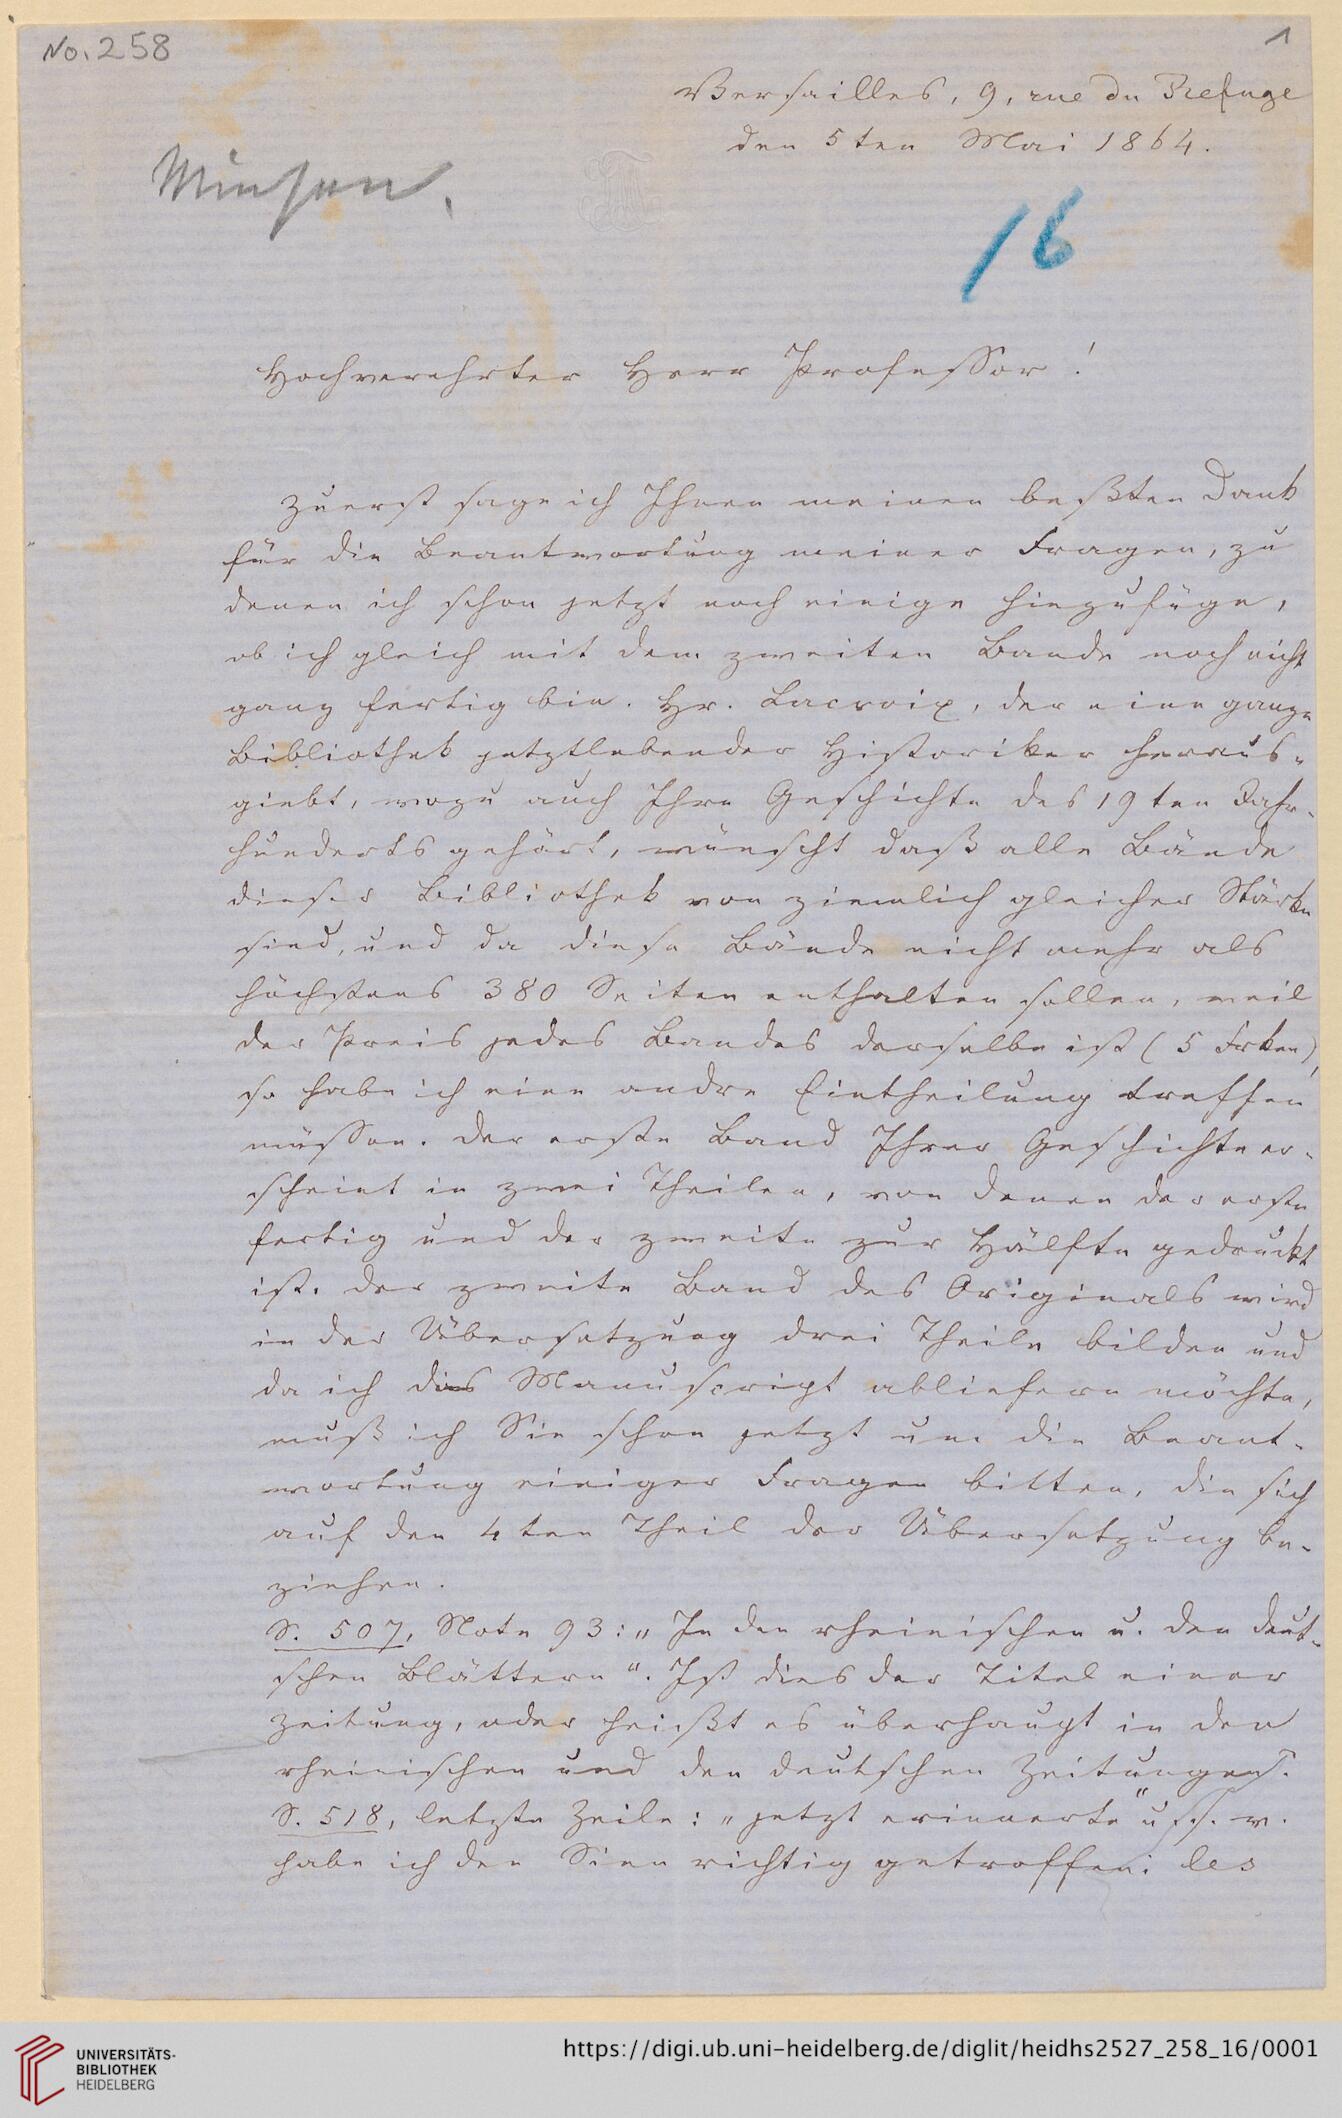 No. 258
1
Versailles, 9, rue du Refuge
den 5ten Mai 1864.
Minssen.
16
Hochverehrter Herr Professor!
Zuerst sage ich Ihnen meinen beßten Dank
für die Beantwortung meiner Fragen, zu
denen ich schon jetzt noch einige hinzufüge,
ob ich gleich mit dem zweiten Bande noch nicht
ganz fertig bin. Hr. Lacroix, der eine ganze
Bibliothek jetztlebender Historiker heraus-
giebt, wozu auch Ihre Geschichte des 19ten Jahr-
hunderts gehört, wünscht daß alle Bände
dieser Bibliothek von ziemlich gleicher Stärke
sind, und da diese Bände nicht mehr als
höchstens 380 Seiten enthalten sollen, weil
der Preis jedes Bandes derselbe ist (5 Frken),
so habe ich eine andre Eintheilung treffen
müssen. Der erste Band Ihrer Geschichte er-
scheint in zwei Theilen, von denen der erste
fertig und der zweite zur Hälfte gedruckt
ist. Der zweite Band des Originals wird
in der Übersetzung drei Theile bilden und
da ich das Manuscript abliefern möchte,
muß ich Sie schon jetzt um die Beant-
wortung einiger Fragen bitten, die sich
auf den 4ten Theil der Übersetzung be-
ziehen.
S. 507, Note 93: „In den rheinischen u. den deut-
schen Blättern“. Ist dies der Titel einer
Zeitung, oder heißt es überhaupt in den
rheinischen und den deutschen Zeitungen?
S. 518, letzte Zeile: „jetzt erinnerte“ u. s. w.
habe ich den Sinn richtig getroffen: les
UNIVERSITÄTS-
BIBLIOTHEK
HEIDELBERG
https://digi.ub.uni-heidelberg.de/diglit/heidhs2527_258_16/0001